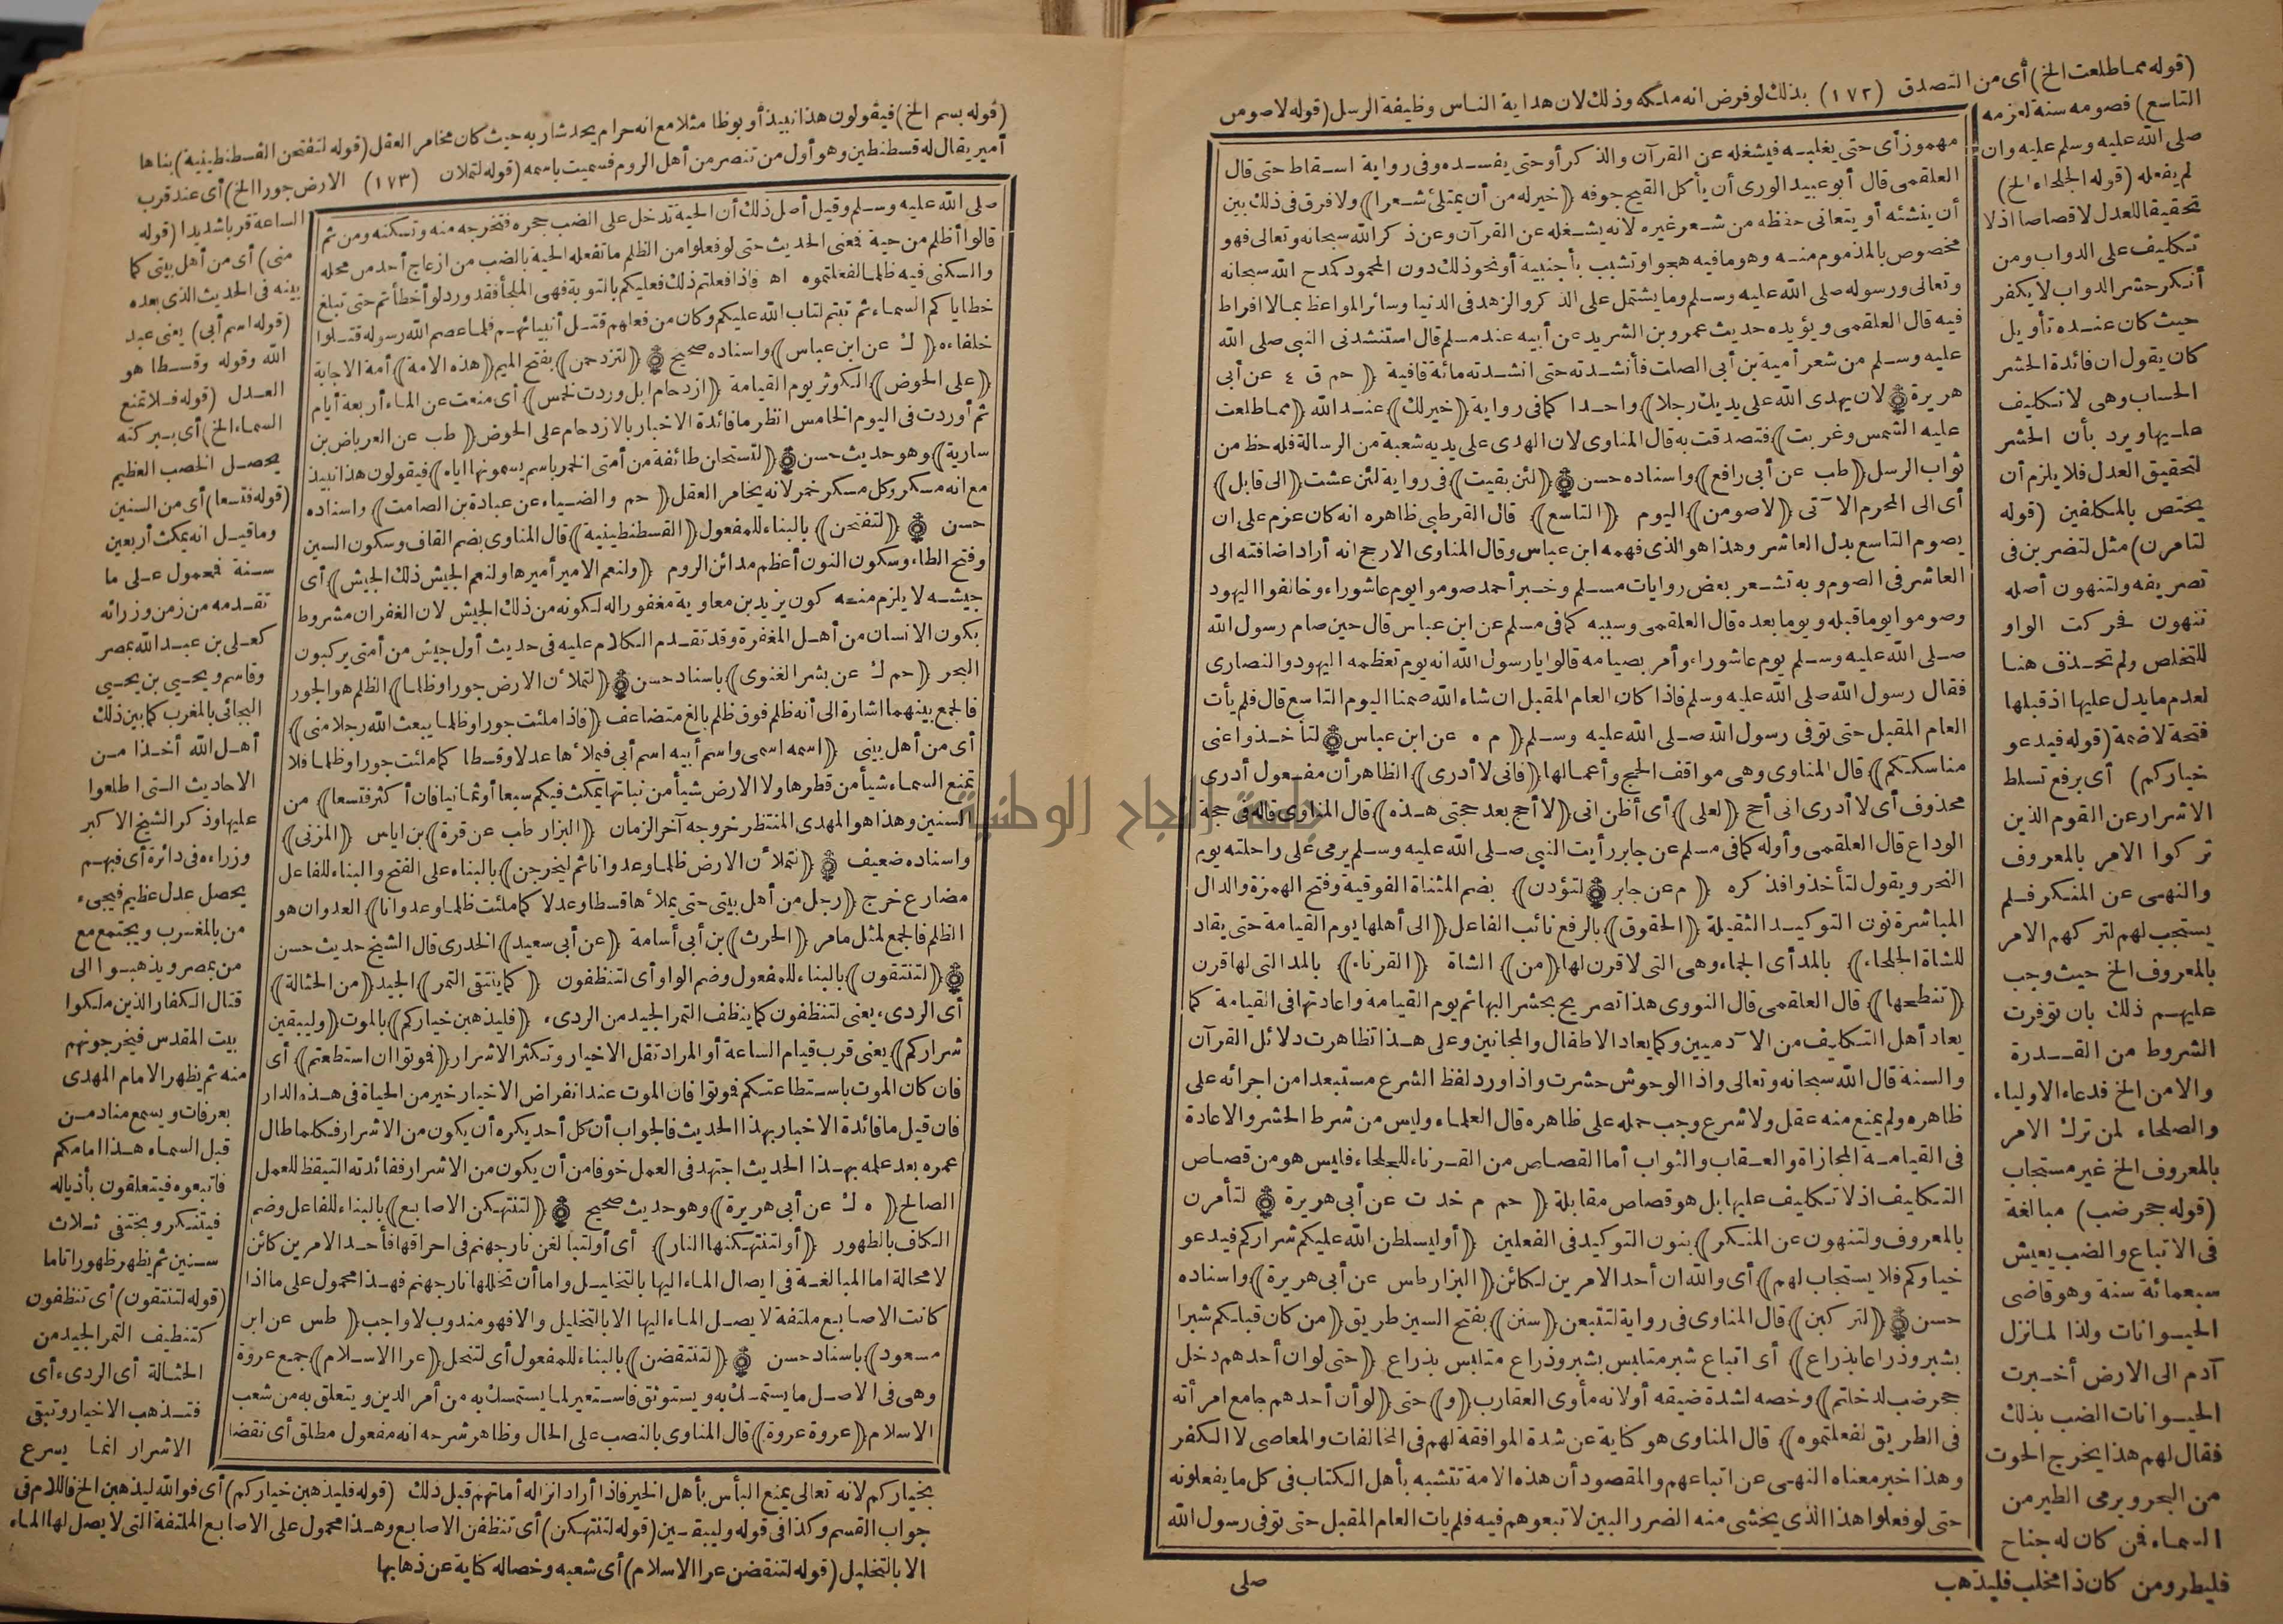 (قوله مما طلعت الخ) أى من التصدق (١٧٢) بذلك لو فرض انه ملكه وذلك لان هداية الناس وظيفة الرسل (قوله لاصومن
التاسع) فصومه سنة لعزمه
صلى الله عليه وسلم عليه وان
لم يفعله (قوله الجلحاء الخ)
تحقيقا للعدل لاقصاصا اذ لا
تكليف على الدواب ومن
أنكر حشر الدواب لا يكفر
حيث كان عنده تأويل
كان يقول ان فائدة الحشر
الحساب وهى لا تكليف
عليها ويرد بأن الحشر
لتحقيق العدل فلا يلزم أن
يختص بالمكلفين (قوله
لتامرن) مثل لتضربن فى
تصريفه ولتنهون أصله
تنهون فحركت الواو
للتخلص ولم تحذف هنا
لعدم ما يدل عليها اذ قبلها
فتحة لاضمة (قوله فيدعو
خياركم) أى برفع تسلط
الاشرار عن القوم الذين
تركوا الامر بالمعروف
والنهى عن المنكر فلم
يستجب لهم لتركهم الامر
بالمعروف الخ حيث وجب
عليهم ذلك بان توفرت
الشروط من القدرة
والامن الخ فدعاء الاولياء
والصلحاء لمن ترك الامر
بالمعروف الخ غير مستجاب
(قوله جحر ضب) مبالغة
فى الاتباع والضب يعيش
سبعمائة سنة وهو قاضى
الحيوانات ولذا لما نزل
آدم الى الارض أخبرت
الحيوانات الضب بذلك
فقال لهم هذا يخرج الحوت
من البحر ويرمى الطير من
السماء فمن كان له جناح
فليطر ومن كان ذا مخلب فليذهب
مهموز أى حتى يغلبه فيشغله عن القرآن والذكر أو حتى يفسده وفى رواية اسقاط حتى قال
العلقمى قال أبو عبيد الورى أن يأكل القيح جوفه (خير له من أن يمتلئ شعرا) ولا فرق فى ذلك بين
أن ينشئه أو يتعانى حفظه من شعر غيره لانه يشغله عن القرآن وعن ذكر الله سبحانه وتعالى فهو
مخصوص بالمذموم منه وهو ما فيه هجو او تشبب بأجنبية أو نحو ذلك دون المحمود كمدح الله سبحانه
وتعالى ورسوله صلى الله عليه وسلم وما يشتمل على الذكر والزهد فى الدنيا وسائر المواعظ بما لا افراط
فيه قال العلقمى ويؤيده حديث عمرو بن الشريد عن أبيه عند مسلم قال استنشدنى النبى صلى الله
عليه وسلم من شعر أمية بن أبى الصلت فأنشدته حتى انشدته مائة قافية (حم ق ٤ عن أبى
هريرة) (لان يهدى الله على يديك رجلا) واحدا كما فى رواية (خير لك) عند الله (مما طلعت
عليه الشمس وغربت) فتصدقت به قال المناوى لان الهدى على يديه شعبة من الرسالة فله حظ من
ثواب الرسل (طب عن أبى رافع) واسناده حسن (لئن بقيت) فى رواية لئن عشت (الى قابل)
أى الى المحرم الآتى (لاصومن) اليوم (التاسع) قال القرطبى ظاهره انه كان عزم على ان
يصوم التاسع بدل العاشر وهذا هو الذى فهمه ابن عباس وقال المناوى الارجح انه أراد اضافته الى
العاشر فى الصوم وبه تشعر بعض روايات مسلم وخبر أحمد صوموا يوم عاشوراء وخالفوا اليهود
وصوموا يوما قبله ويوما بعده قال العلقمى وسببه كما فى مسلم عن ابن عباس قال حين صام رسول الله
صلى الله عليه وسلم يوم عاشوراء وأمر بصيامه قالوا يا رسول الله انه يوم تعظمه اليهود والنصارى
فقال رسول الله صلى الله عليه وسلم فاذا كان العام المقبل ان شاء الله صمنا اليوم التاسع قال فلم يأت
العام المقبل حتى توفى رسول الله صلى الله عليه وسلم (م ه عن ابن عباس) لتأخذوا عنى
مناسككم) قال المناوى وهى مواقف الحج وأعمالها (فانى لا أدرى) الظاهر أن مفعول أدرى
محذوف أى لا أدرى انى أحج (لعلى) أى أظن انى (لا أحج بعد حجتى هذه) قال المناوى قاله فى حجة
الوداع قال العلقمى وأوله كما فى مسلم عن جابر رأيت النبى صلى الله عليه وسلم يرمى على راحلته يوم
النحر ويقول لتأخذوا فذكره (م عن جابر) لتؤدن) بضم المثناة الفوقية وفتح الهمزة والدال
المباشرة نون التوكيد الثقيلة (الحقوق) بالرفع نائب الفاعل (الى أهلها يوم القيامة حتى يقاد
للشاة الجلحاء) بالمد أى الجماء وهى التى لا قرن لها (من) الشاة (القرناء) بالمد التى لها قرن
(تنطحها) قال العلقمى قال النووى هذا تصريح بحشر البهائم يوم القيامة واعادتها فى القيامة كما
يعاد أهل التكليف من الآدميين وكما يعاد الاطفال والمجانين وعلى هذا تظاهرت دلائل القرآن
والسنة قال الله سبحانه وتعالى واذا الوحوش حشرت واذا ورد لفظ الشرع مستبعدا من اجرائه على
ظاهره ولم يمنع منه عقل ولا شرع وجب حمله على ظاهره قال العلماء وليس من شرط الحشر والاعادة
فى القيامة المجازاة والعقاب والثواب أما القصاص من القرناء للجلحاء فليس هو من قصاص
التكليف اذ لا تكليف عليها بل هو قصاص مقابلة (حم م خد ت عن أبى هريرة) لتأمرن
بالمعروف ولتنهون عن المنكر) بنون التوكيد فى الفعلين (أو ليسلطن الله عليكم شراركم فيدعو
خياركم فلا يستجاب لهم) أى والله ان أحد الامرين لكائن (البزار طس عن أبى هريرة) واسناده
حسن (لتركبن) قال المناوى فى رواية لتتبعن (سنن) بفتح السين طريق (من كان قبلكم شبرا
بشبر وذراعا بذراع) أى اتباع شبر متلبس بشبر وذراع متلبس بذراع (حتى لو ان أحدهم دخل
جحر ضب لدخلتم) وخصه لشدة ضيقه أو لانه مأوى العقارب (و) حتى (لو أن أحدهم جامع امرأته
فى الطريق لفعلتموه) قال المناوى هو كناية عن شدة الموافقة لهم فى المخالفات والمعاصى لا الكفر
وهذا خبر معناه النهى عن اتباعهم والمقصود أن هذه الامة تتشبه بأهل الكتاب فى كل ما يفعلونه
حتى لو فعلوا هذا الذى يخشى منه الضرر البين لا تبعوهم فيه فلم يات العام المقبل حتى توفى رسول الله
صلى
(قوله بسم الخ) فيقولون هذا نبيذ أو بوظا مثلا مع انه حرام يحد شاربه حيث كان مخامر العقل (قوله لتفتحن القسطنطينية) بناها
أمير يقال له قسطنطين وهو أول من تنصر من أهل الروم فسميت باسمه (قوله لتملان (١٧٣) الارض جورا الخ) أى عند قرب
الساعة قربا شديدا (قوله
منى) أى من أهل بيتى كما
بينه فى الحديث الذى بعده
(قوله اسم أبى) يعنى عبد
الله وقوله وقسطا هو
العدل (قوله فلا تمنع
السماء الخ) أى ببركته
يحصل الخصب العظيم
(قوله فتسعا) أى من السنين
وما قيل انه يمكث أربعين
سنة فمحمول على ما
تقدمه من زمن وزرائه
كعلى بن عبد الله بمصر
وقاسم ويحيى بن يحيى
البجائى بالمغرب كما بين ذلك
أهل الله أخذا من
الاحاديث التى اطلعوا
عليها وذكر الشيخ الاكبر
وزراءه فى دائرة أى فبهم
يحصل عدل عظيم فيجىء
من بالمغرب ويجتمع مع
من بمصر ويذهبوا الى
قتال الكفار الذين ملكوا
بيت المقدس فيخرجونهم
منه ثم يظهر الامام المهدى
بعرفات ويسمع مناد من
قبل السماء هذا امامكم
فاتبعوه فيتعلقون بأذياله
فيتنكر ويختفى ثلاث
سنين ثم يظهر ظهورا تاما
(قوله لتنتقون) أى تنظفون
كتنظيف التمر الجيد من
الحثالة أى الردىء أى
فتذهب الاخيار وتبقى
الاشرار انما يسرع
صلى الله عليه وسلم وقيل أصل ذلك أن الحية تدخل على الضب جحره فتخرجه منه وتسكنه ومن ثم
قالوا أظلم من حية فمعنى الحديث حتى لو فعلوا من الظلم ما تفعله الحية بالضب من ازعاج أحد من محله
والسكنى فيه ظلما لفعلتموه اه فاذا فعلتم ذلك فعليكم بالتوبة فهى الملجأ فقد ورد لو أخطأتم حتى تبلغ
خطاياكم السماء ثم تبتم لتاب الله عليكم وكان من فعلهم قتل أنبيائهم فلما عصم الله رسوله قتلوا
خلفاءه (ك عن ابن عباس) واسناده صحيح (لتزدحمن) بفتح الميم (هذه الامة) أمة الاجابة
(على الحوض) الكوثر يوم القيامة (ازدحام ابل وردت لخمس) أى منعت عن الماء أربعة أيام
ثم أوردت فى اليوم الخامس انظر ما فائدة الاخبار بالازدحام على الحوض (طب عن العرباض بن
سارية) وهو حديث حسن (لتستحلن طائفة من أمتى الخمر باسم يسمونها اياه) فيقولون هذا نبيذ
مع انه مسكر وكل مسكر خمر لانه يخامر العقل (حم والضياء عن عبادة بن الصامت) واسناده
حسن (لتفتحن) بالبناء للمفعول (القسطنطينية) قال المناوى بضم القاف وسكون السين
وفتح الطاء وسكون النون أعظم مدائن الروم (ولنعم الامير أميرها ولنعم الجيش ذلك الجيش) أى
جيشه لا يلزم منه كون يزيد بن معاوية مغفورا له لكونه من ذلك الجيش لان الغفران مشروط
بكون الانسان من أهل المغفرة وقد تقدم الكلام عليه فى حديث أول جيش من أمتى يركبون
البحر (حم ك عن بشر الغنوى) باسناد حسن (لتملأن الارض جورا وظلما) الظلم هو الجور
فالجمع بينهما اشارة الى أنه ظلم فوق ظلم بالغ متضاعف (فاذا ملئت جورا وظلما يبعث الله رجلا منى)
أى من أهل بيتى (اسمه اسمى واسم أبيه اسم أبى فيملأها عدلا وقسطا كما ملئت جورا وظلما فلا
تمنع السماء شيأ من قطرها ولا الارض شيأ من نباتها يمكث فيكم سبعا أو ثمانيا فان أكثر فتسعا) من
السنين وهذا هو المهدى المنتظر خروجه آخر الزمان (البزار طب عن قرة) بن اياس (المزنى)
واسناده ضعيف (لتملأن الارض ظلما وعدوانا ثم ليخرجن) بالبناء على الفتح والبناء للفاعل
مضارع خرج (رجل من أهل بيتى حتى يملأها قسطا وعدلا كما ملئت ظلما وعدوانا) العدوان هو
الظلم فالجمع لمثل ما مر (الحرث) بن أبى أسامة (عن أبى سعيد) الخدرى قال الشيخ حديث حسن
(لتنتقون) بالبناء للمفعول وضم الواو أى لتنظفون (كما ينتقى التمر) الجيد (من الحثالة)
أى الردىء يعنى لتنظفون كما ينظف التمر الجيد من الردىء (فليذهبن خياركم) بالموت (وليبقين
شراركم) يعنى قرب قيام الساعة أو المراد تقل الاخيار وتكثر الاشرار (فموتوا ان استطعتم) أى
فان كان الموت باستطاعتكم فموتوا فان الموت عند انقراض الاخيار خير من الحياة فى هذه الدار
فان قيل ما فائدة الاخبار بهذا الحديث فالجواب أن كل أحد يكره أن يكون من الاشرار فكلما طال
عمره بعد علمه بهذا الحديث اجتهد فى العمل خوفا من أن يكون من الاشرار ففائدته التيقظ للعمل
الصالح (ه ك عن أبى هريرة) وهو حديث صحيح (لتنتهكن الاصابع) بالبناء للفاعل وضم
الكاف بالطهور (أو لتنتهكنها النار) أى أو لتبالغن نار جهنم فى احراقها فأحد الامرين كائن
لا محالة اما المبالغة فى ايصال الماء اليها بالتخليل واما أن تخللها نار جهنم فهذا محمول على ما اذا
كانت الاصابع ملتفة لا يصل الماء اليها الا بالتخليل والا فهو مندوب لا واجب (طس عن ابن
مسعود) باسناد حسن (لتنتقضن) بالبناء للمفعول أى لتنحل (عرا الاسلام) جمع عروة
وهى فى الاصل ما يستمسك به ويستوثق فاستعير لما يستمسك به من أمر الدين ويتعلق به من شعب
الاسلام (عروة عروة) قال المناوى بالنصب على الحال وظاهر شرحه انه مفعول مطلق أى نقضا
بخياركم لانه تعالى يمنع البأس بأهل الخير فاذا أراد انزاله أماتهم قبل ذلك (قوله فليذهبن خياركم) أى فوالله ليذهبن الخ فاللام فى
جواب القسم وكذا فى قوله وليبقين (قوله لتنتهكن) أى تنظفن الاصابع وهذا محمول على الاصابع الملتفة التى لا يصل لها الماء
الا بالتخليل (قوله لتنقضن عرا الاسلام) أى شعبه وخصاله كناية عن ذهابها
جامعة النجاح الوطنية